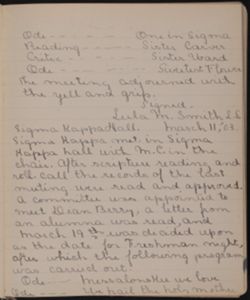 Ode - - - - - One in Sigma
Reading - - - - - Sister Carver
Critic - - - - - Sister Ward
Ode - - - - - Sweetest Flower
The meeting adjourned with
the yell and grip.
Signed.
Leila M. Smith S.S.
Sigma Kappa Hall. March 11, '03.
Sigma Kappa met in Sigma
Kappa hall with M.C. in the
chair. After scripture reading and
roll call the records of the last
meeting were read and approved.
A committee was appointed to
meet Dean Berry, a letter from
an alumna was read, and
March 19th was decided upon
as the date for Freshman night,
after which the following program
was carried out.
Ode - - - we love
Ode - - - We hail the holy mother